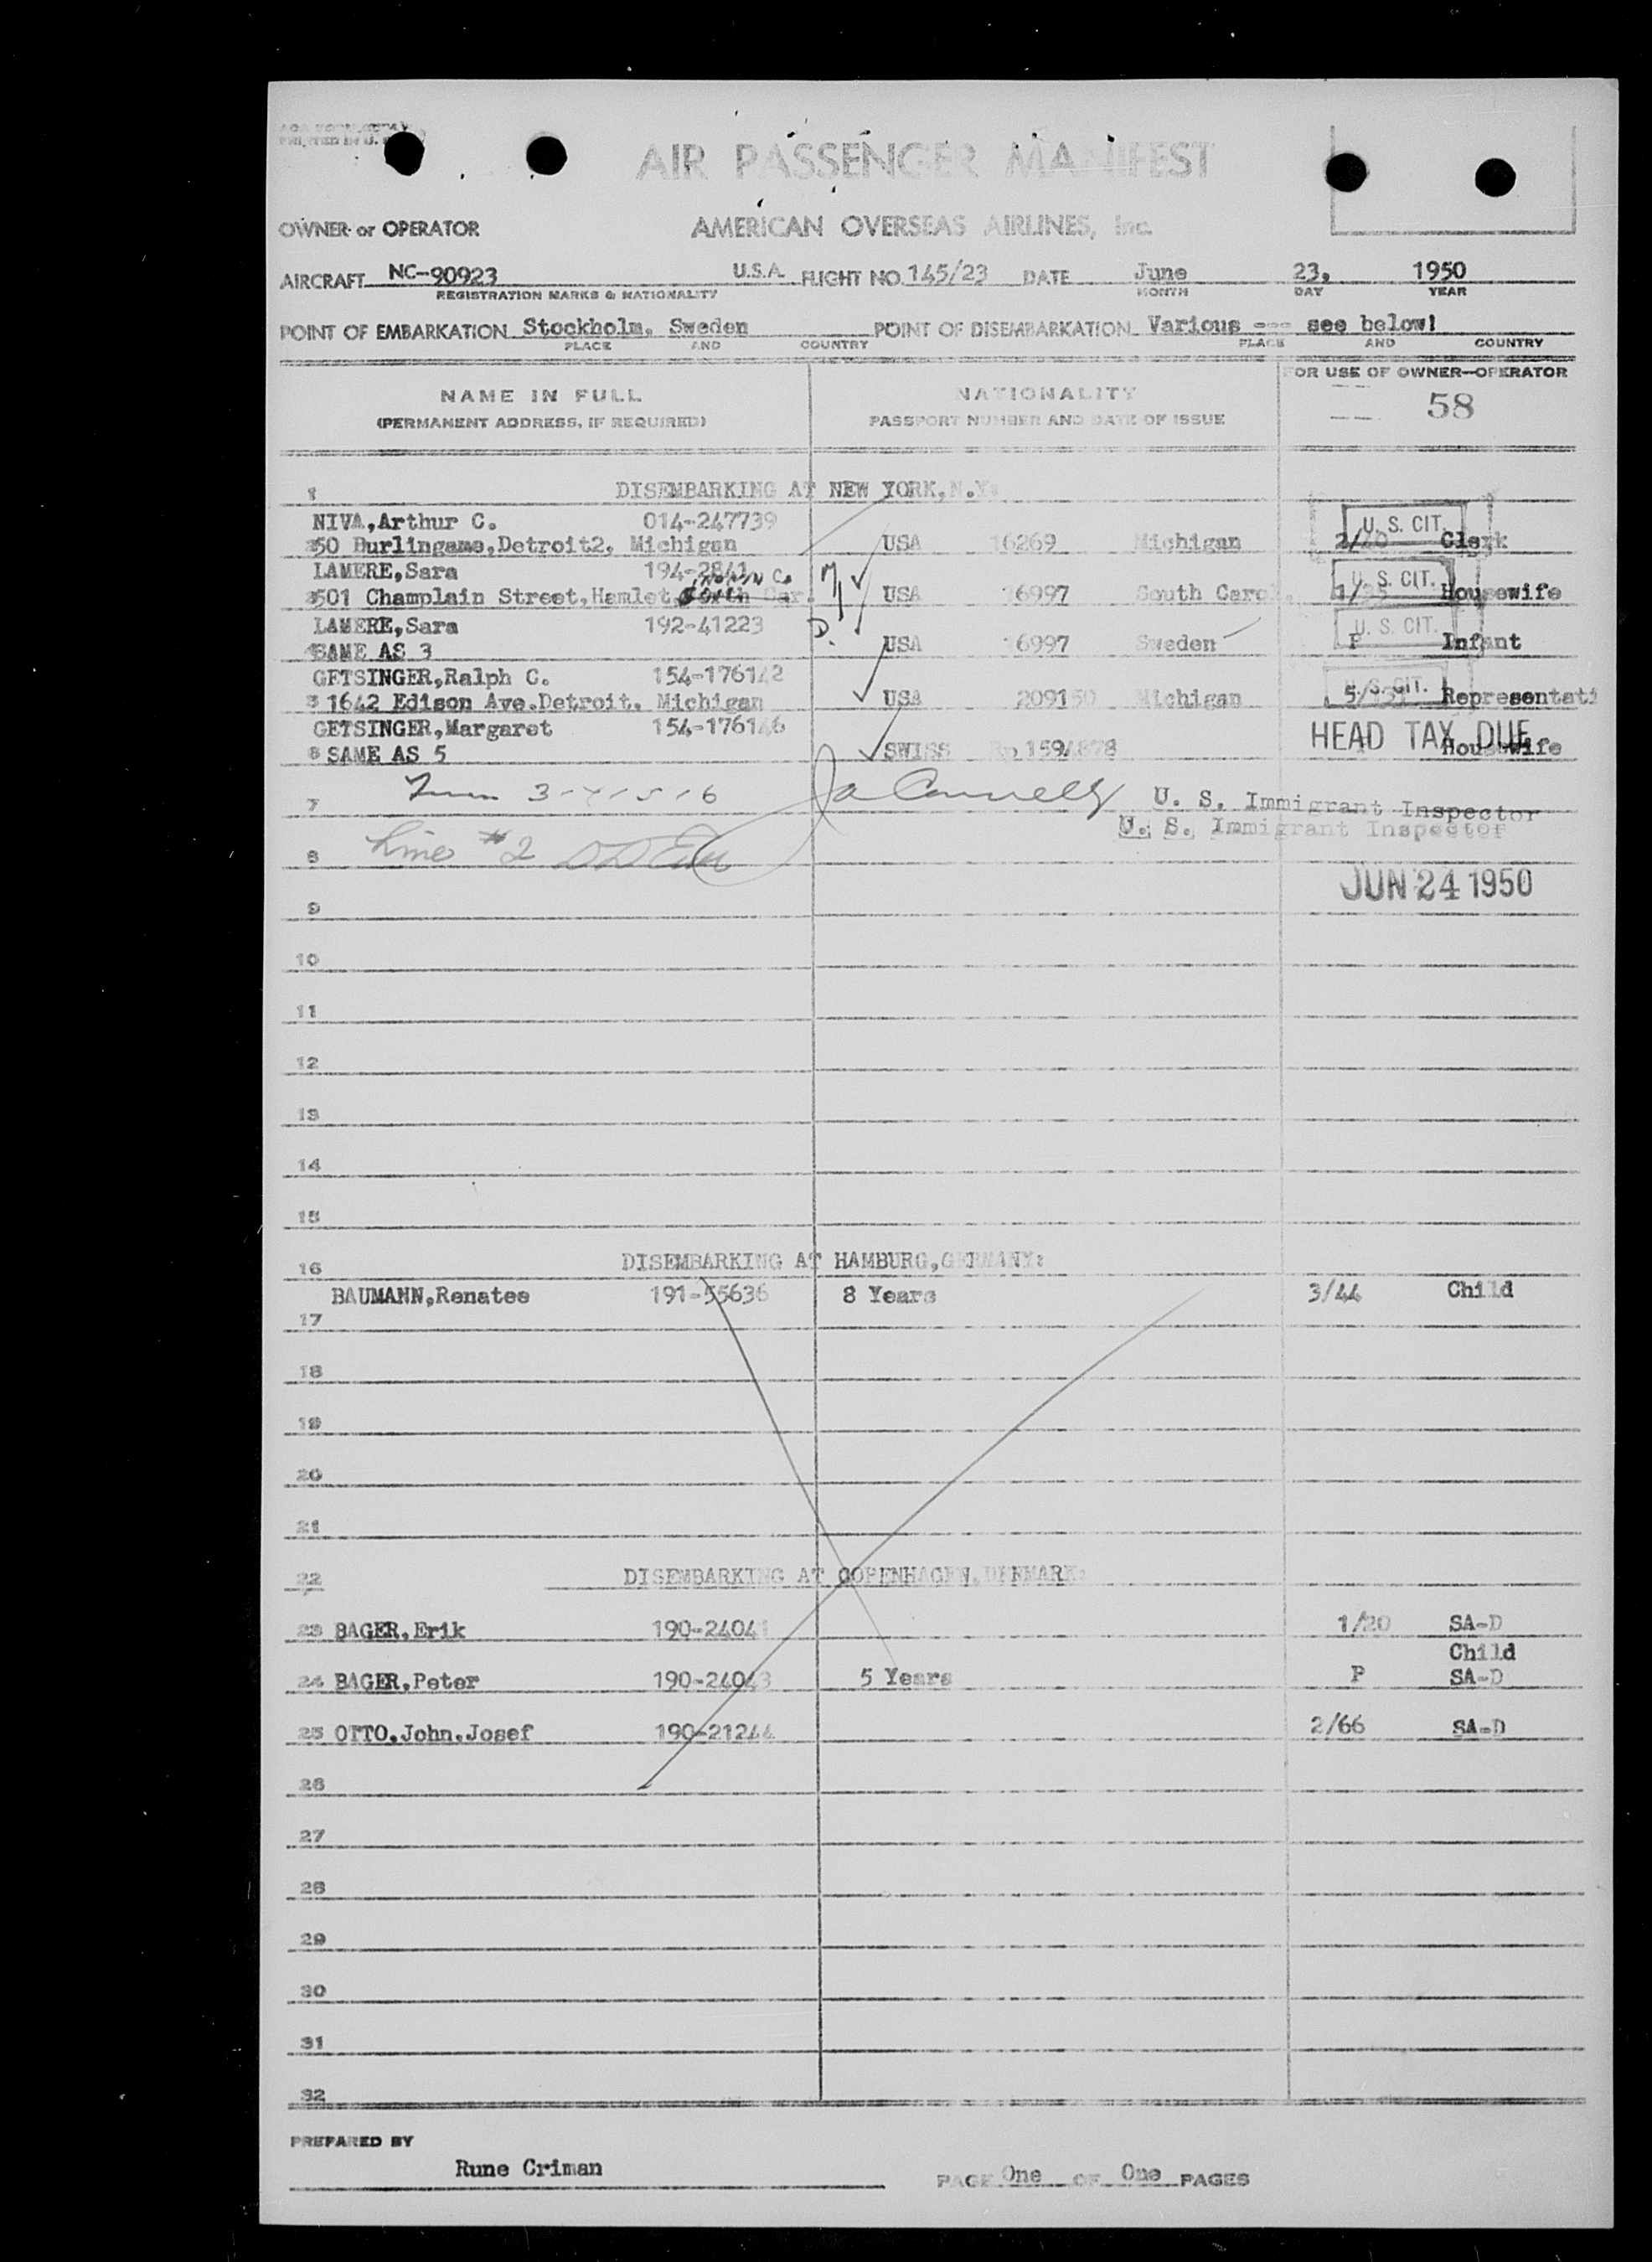 AIR PASSENGER MANIFEST
OWNER or OPERATOR AMERICAN OVERSEAS AIRLINES, Inc.
AIRCRAFT NC-90923 U.S.A. FLIGHT NO. 145/23 DATE June 23, 1950
REGISTRATION MARKS & NATIONALITY MONTH DAY YEAR
POINT OF EMBARKATION Stockholm, Sweden POINT OF DISEMBARKATION Various --- see below!
PLACE AND COUNTRY PLACE AND COUNTRY
NAME IN FULL NATIONALITY FOR USE OF OWNER-OPERATOR
(PERMANENT ADDRESS, IF REQUIRED) PASSPORT NUMBER AND DATE OF ISSUE 58
1 DISEMBARKING AT NEW YORK, N.Y.
NIVA,Arthur C. 014-247739 U. S. CIT.
50 Burlingame,Detroit2, Michigan USA 16269 Michigan Clerk
LAMERE,Sara 194-2841 U. S. CIT.
501 Champlain Street,Hamlet, USA 16997 South Carol. Housewife
LAMERE,Sara 192-41223 D. U. S. CIT.
SAME AS 3 USA 16997 Sweden F Infant
GETSINGER,Ralph C. 154-176142 U. S. CIT.
1642 Edison Ave.Detroit. Michigan USA 209150 Michigan Representati
GETSINGER,Margaret 154-176146 HEAD TAX DUE
6 SAME AS 5 SWISS 1594878 Housewife
7 3-4-5-6 U. S. Immigrant Inspector
U. S. Immigrant Inspector
8 Line #2
JUN 24 1950
9
10
11
12
13
14
15
16 DISEMBARKING AT HAMBURG,GERMANY:
BAUMANN,Renatee 191-55636 8 Years 3/44 Child
17
18
19
20
21
22 DISEMBARKING AT COPENHAGEN,DENMARK:
23 BAGER,Erik 190-24041 1/20 SA-D
Child
24 BAGER,Peter 190-24043 5 Years F SA-D
25 OTTO,John,Josef 190-21244 2/66 SA-D
26
27
28
29
30
31
32
PREPARED BY
Rune Criman PAGE One OF One PAGES